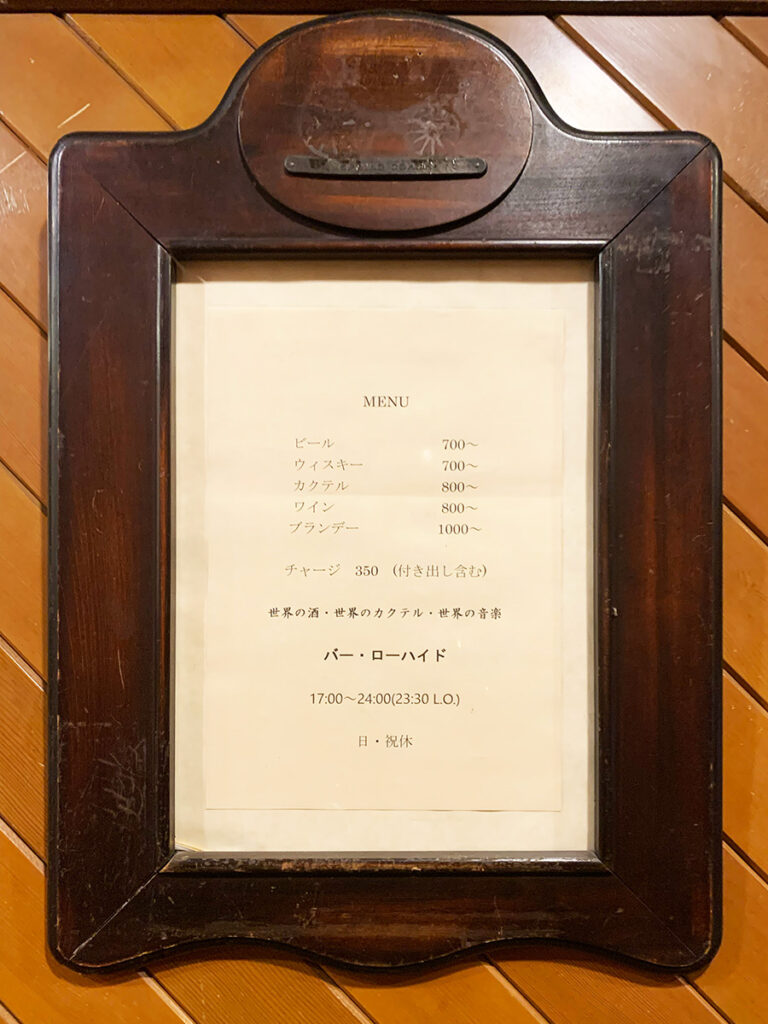 MENU
ビール 700～
ウィスキー 700～
カクテル 800～
ワイン 800～
ブランデー 1000～
チャージ 350 (付き出し含む)
世界の酒・世界のカクテル・世界の音楽
バー・ローハイド
17:00～24:00(23:30 L.O.)
日・祝休